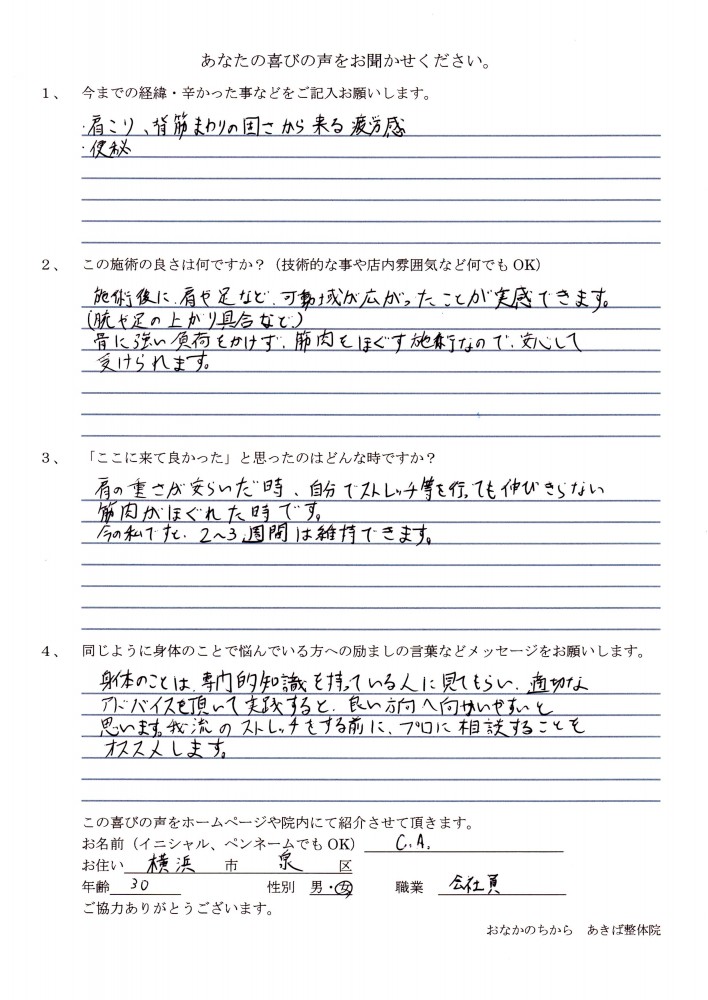 あなたの喜びの声をお聞かせください。
1、 今までの経緯・辛かった事などをご記入お願いします。
・肩こり、背筋まわりの固さから来る疲労感
・便秘
2、 この施術の良さは何ですか？（技術的な事や店内雰囲気など何でも OK）
施術後に、肩や足など、可動域が広がったことが実感できます。
（腕や足の上がり具合など）
骨に強い負荷をかけず、筋肉をほぐす施術なので、安心して
受けられます。
3、 「ここに来て良かった」と思ったのはどんな時ですか？
肩の重さが安らいだ時、自分でストレッチ等を行っても伸びきらない
筋肉がほぐれた時です。
今の私ですと、2〜3週間は維持できます。
4、 同じように身体のことで悩んでいる方への励ましの言葉などメッセージをお願いします。
身体のことは、専門的知識を持っている人に見てもらい、適切な
アドバイスを頂いて実践すると、良い方向へ向かいやすいと
思います。我流のストレッチをする前に、プロに相談することも
オススメします。
この喜びの声をホームページや院内にて紹介させて頂きます。
お名前（イニシャル、ペンネームでも OK） C.A.
お住い 横浜 市 泉 区
年齢 30 性別 男・女 職業 会社員
ご協力ありがとうございます。
おなかのちから あきば整体院